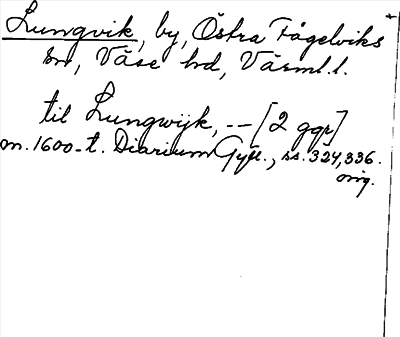 Lungvik, by, Östra Fågelviks
sn, Väse hd, Värml.l.
til Lungwijk, -- [2 ggr]
m.1600-t. Diarium Gyll., ss. 324, 336.
orig.